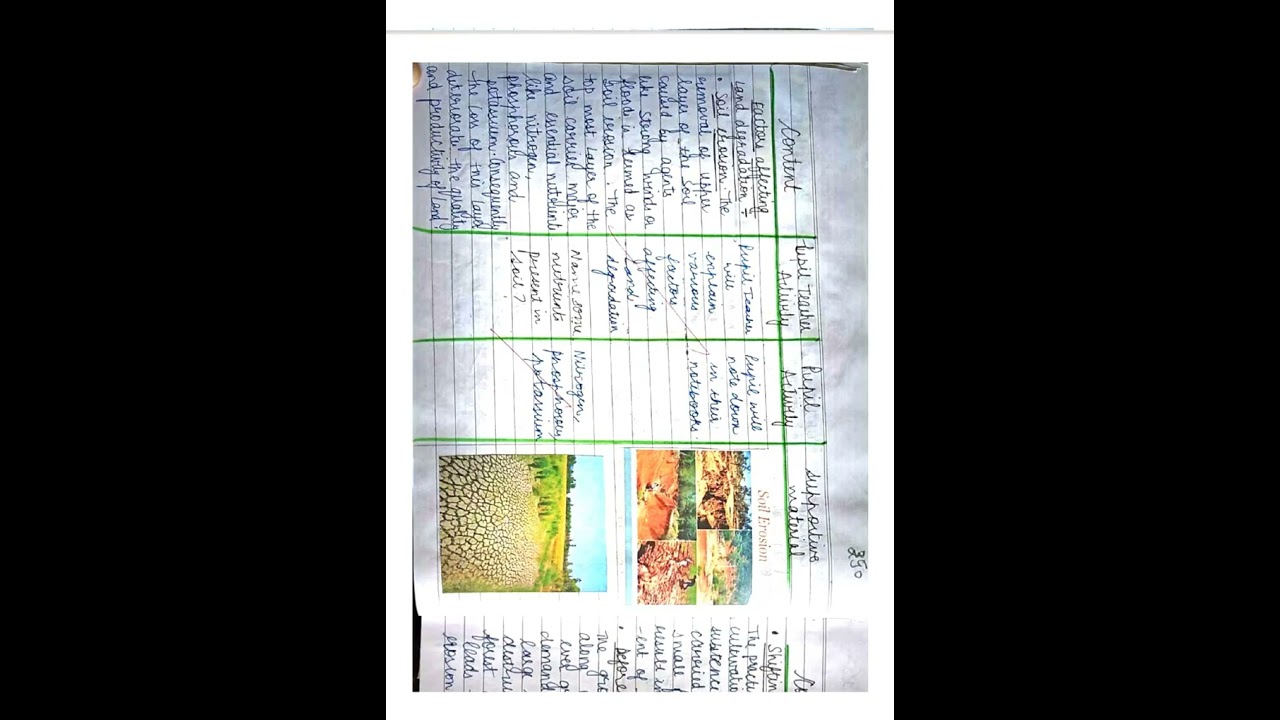 350
Content
Factors affecting
Land degradation :-
• Soil erosion - The
removal of upper
layer of the soil
caused by agents
like strong winds or
floods is termed as
Soil erosion. The
top most layer of the
soil carried major
and essential nutrients
like nitrogen,
phosphorous and
potassium. Consequently
the loss of this layer
deteriorate the quality
and productivity of land.
Pupil Teacher
Activity
Pupil Teacher
will
explain
various
factors
affecting
Land
degradation
Name some
nutrients
present in
soil?
Pupil
Activity
Pupil will
note down
in their
notebooks.
Nitrogen,
phosphorous
potassium
Supportive
material
Soil Erosion
Co
• Shiftin
The practi
cultivatio
carried
small
result i
ent of
• Defore
The gro
along
ever g
demand
large
destru
forest
leads
erosion